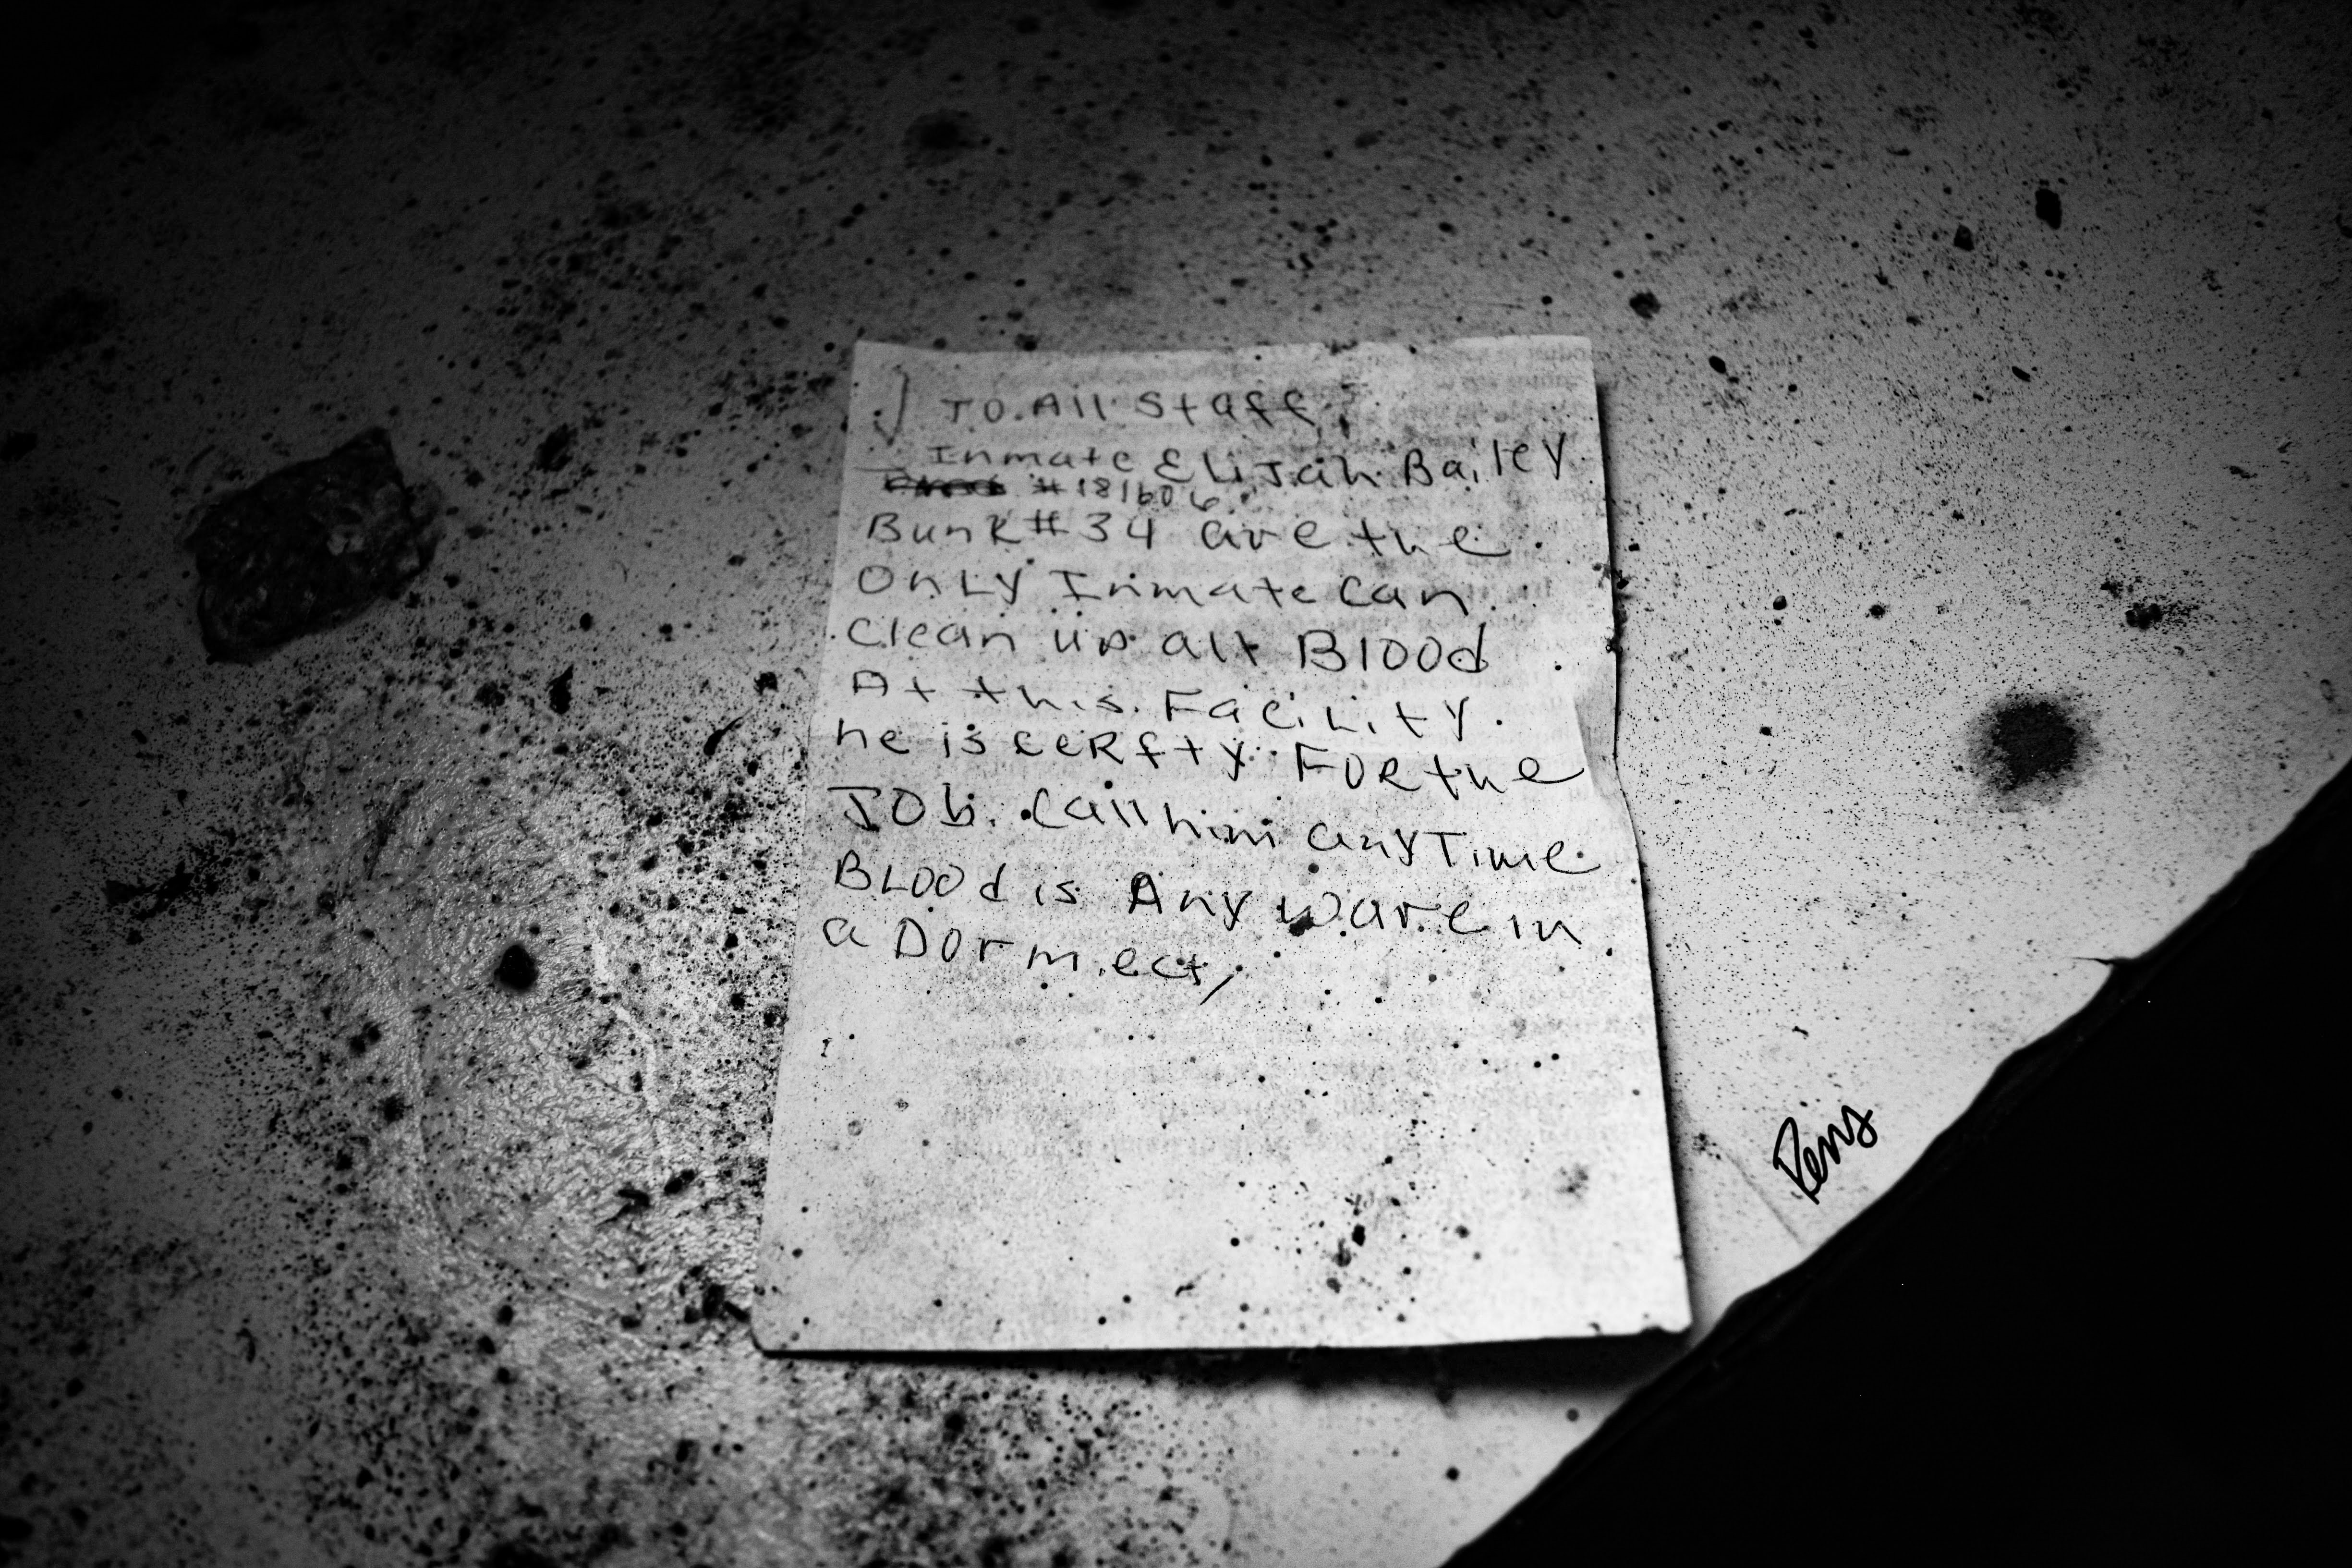 To. All Staff,
Inmate Elijah Bailey
#181606
Bunk #34 are the
Only Inmate Can
Clean up all Blood
At this Facility.
he is cerfty For the
Job. Call him anyTime
Blood is Any ware in
a Dorm.ect,